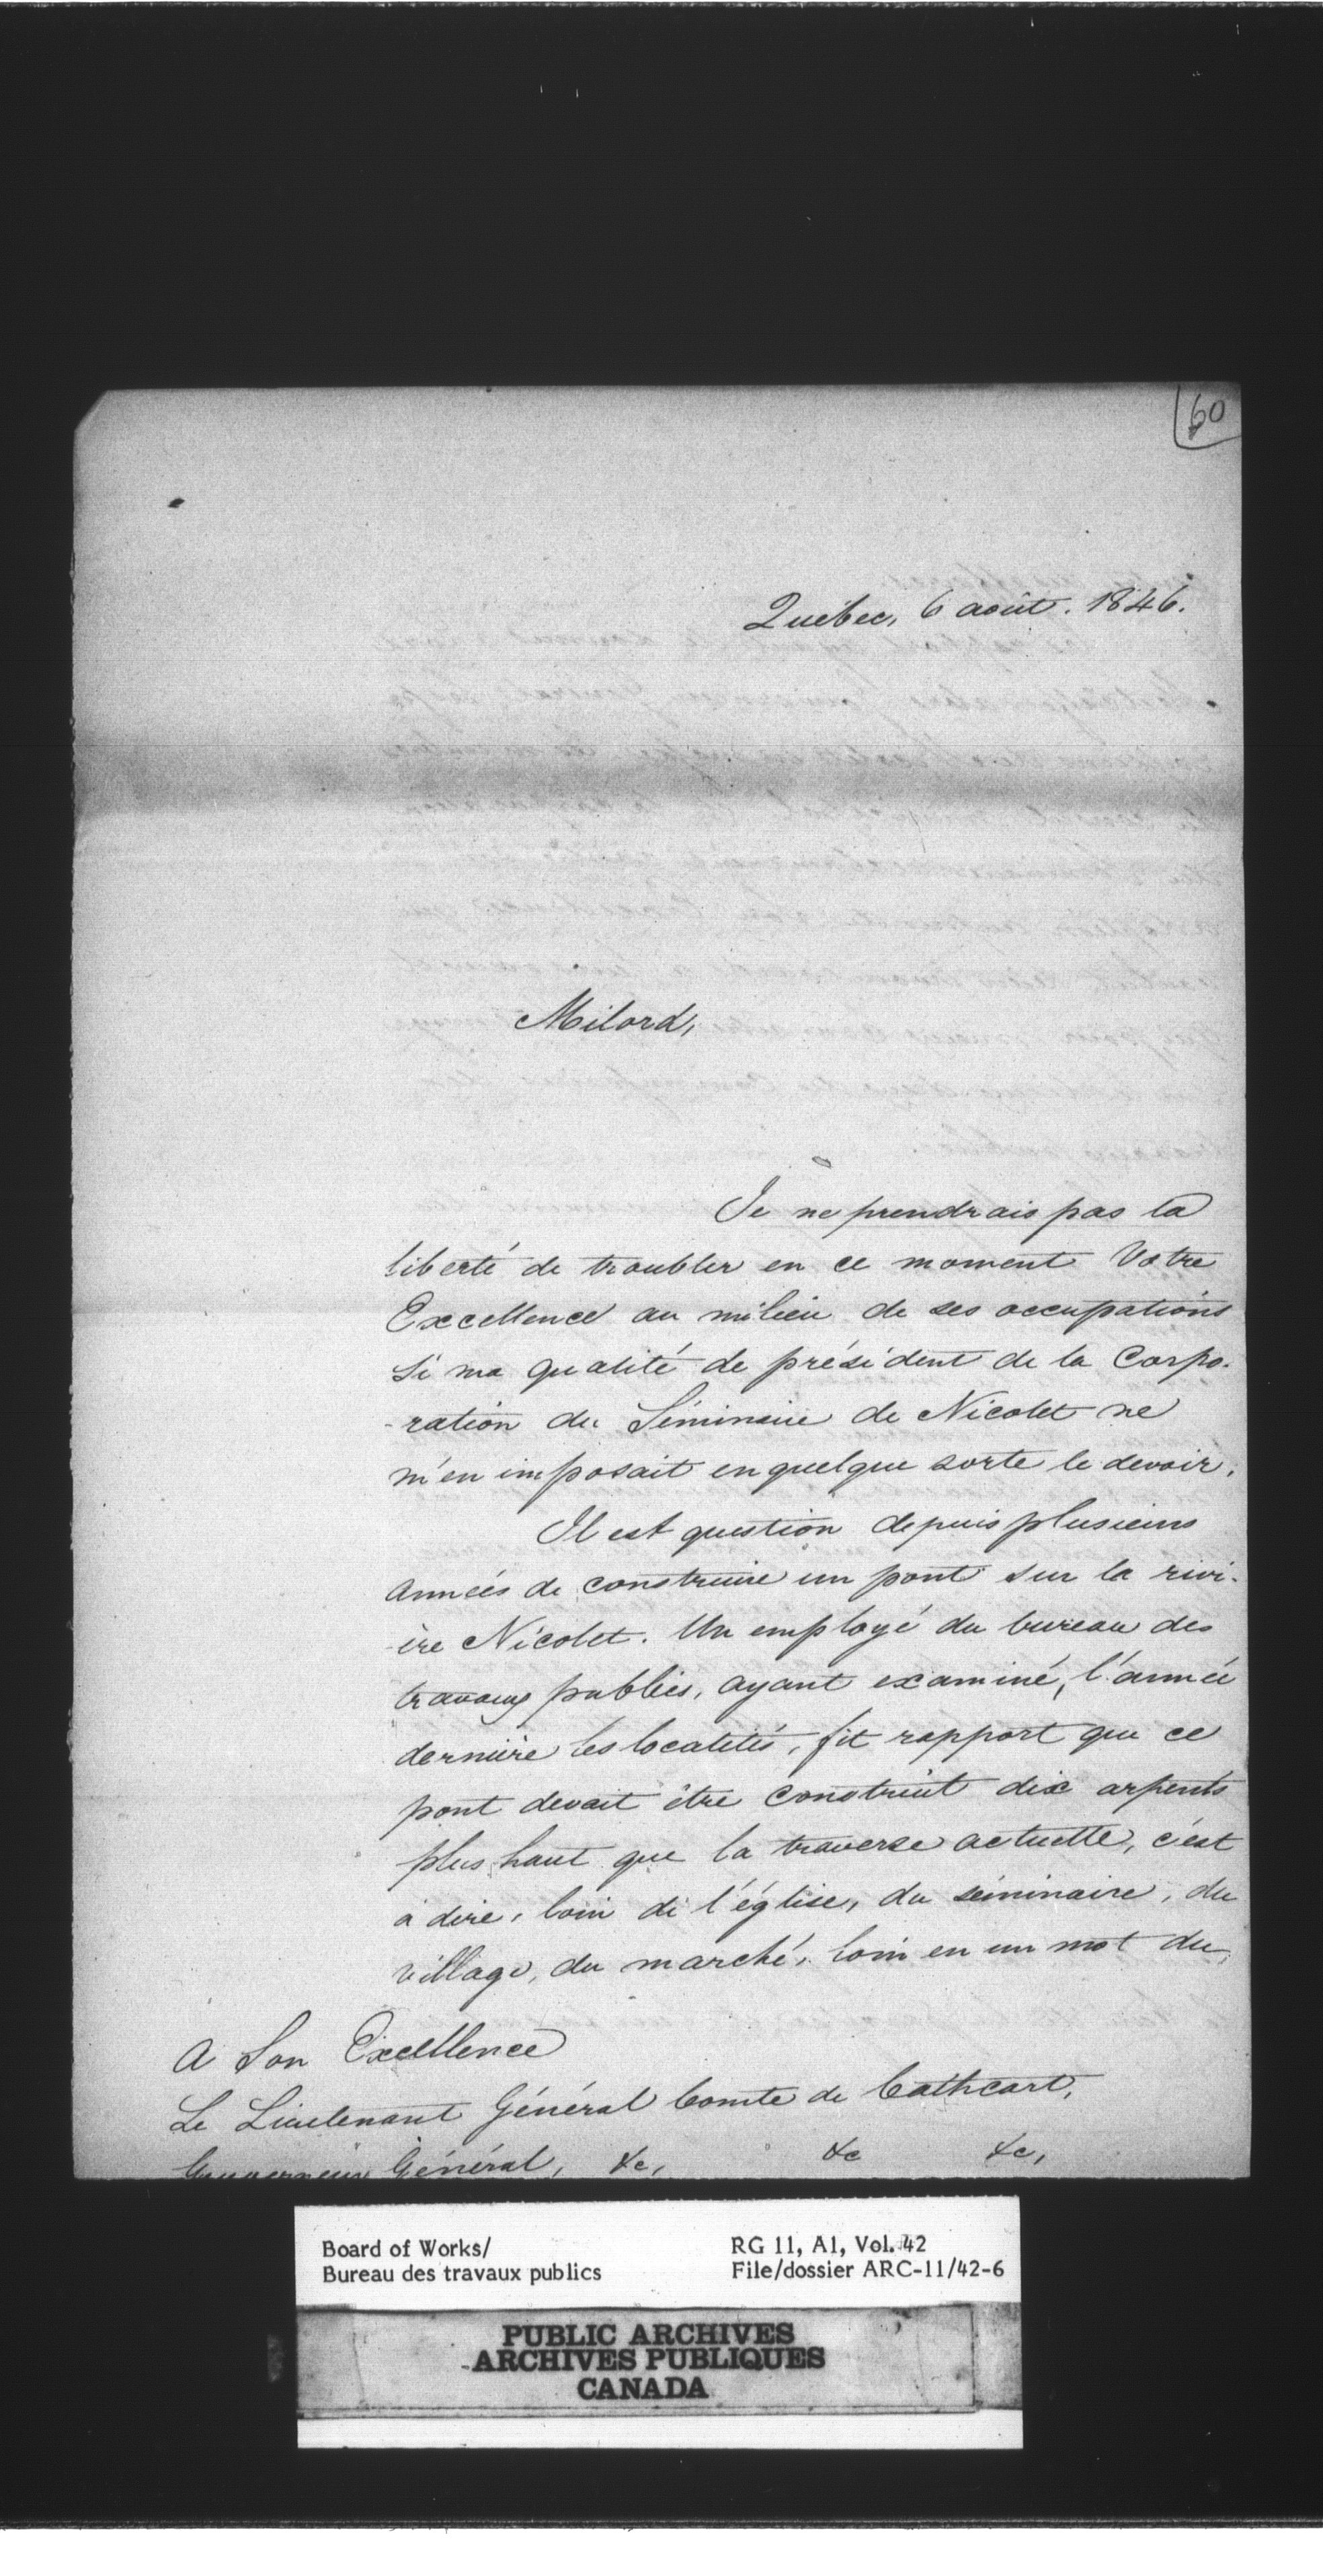 60
Québec, 6 août. 1846.
Milord,
Je ne prendrais pas la
liberté de troubler en ce moment Votre
Excellence au milieu de ses occupations
si ma qualité de président de la Corpo-
-ration du Séminaire de Nicolet ne
m'en imposait en quelque sorte le devoir.
Il est question depuis plusieurs
années de construire un pont sur la rivi-
-ère Nicolet. Un employé du bureau des
travaux publics, ayant examiné, l'année
dernière les localités, fit rapport que ce
pont devait être construit dix arpents
plus haut que la traverse actuelle, c'est
à dire, loin de l'église, du séminaire, du
village, du marché, loin en un mot du
A Son Excellence
Le Lieutenant Général Comte de Cathcart,
Gouverneur Général, &c, &c &c,
Board of Works/
Bureau des travaux publics
RG 11, A1, Vol. 42
File/dossier ARC-11/42-6
PUBLIC ARCHIVES
ARCHIVES PUBLIQUES
CANADA